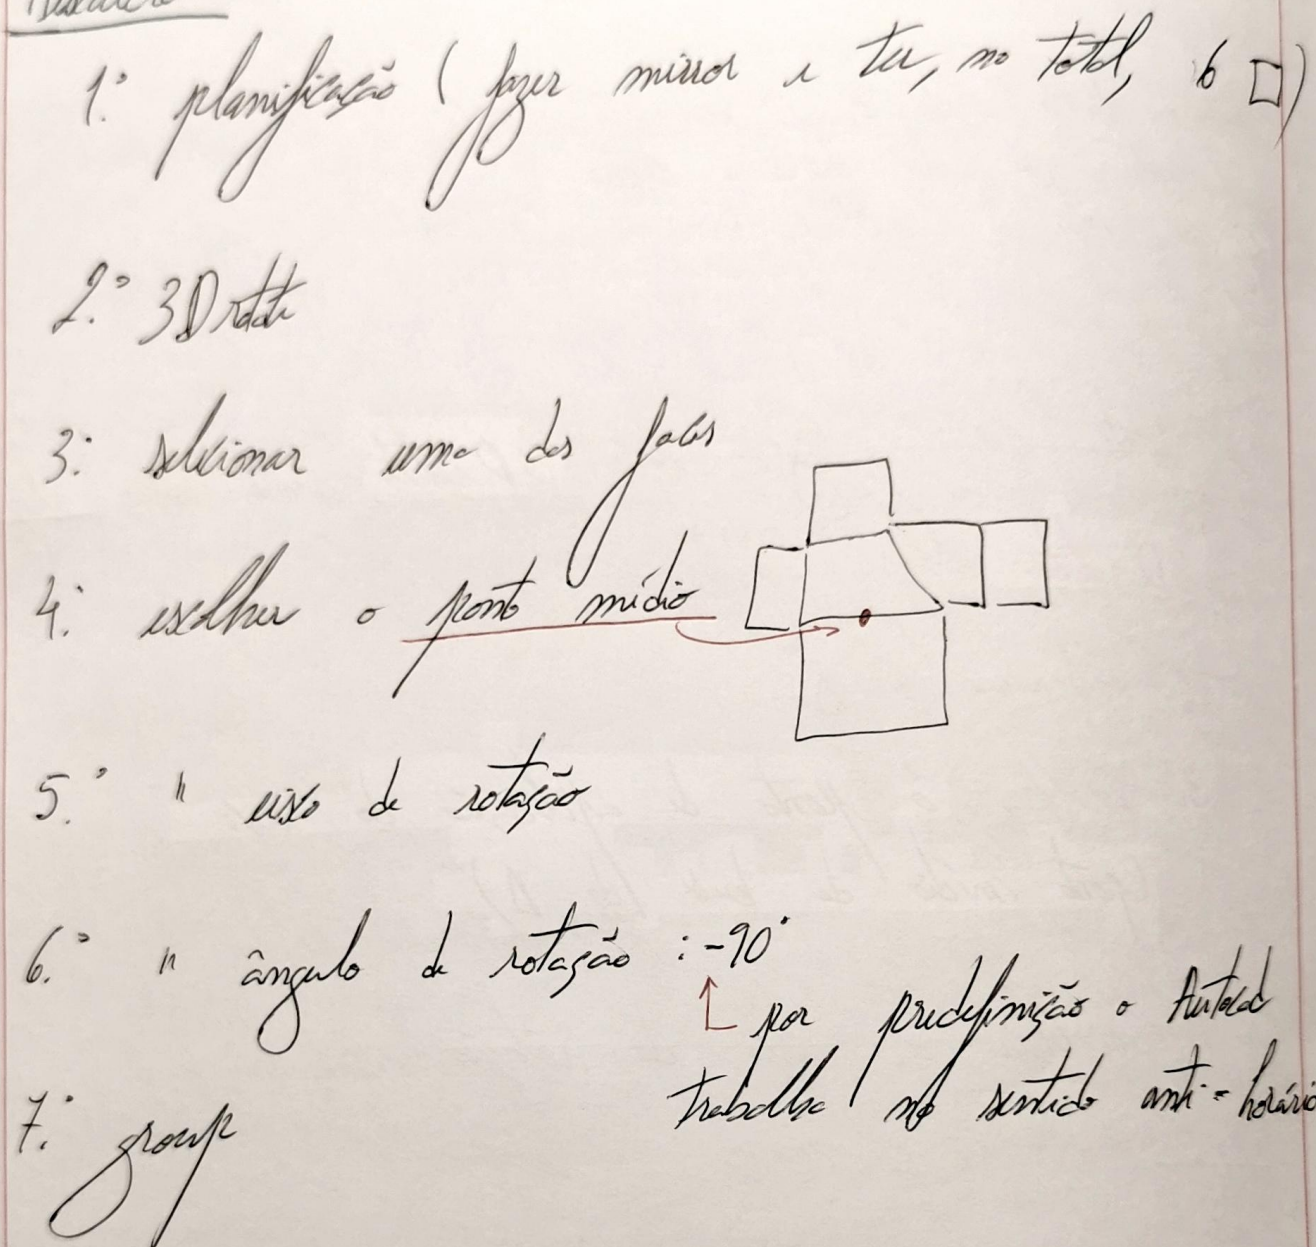 1.º planificação ( fazer mirror e ter, no total, 6 □)
2.º 3D rotate
3.º selecionar uma das faces
4.º escolher o ponto médio
5.º " eixo de rotação
6.º " ângulo de rotação : -90°
por predefinição o Autocad
trabalha no sentido anti-horário
7.º group